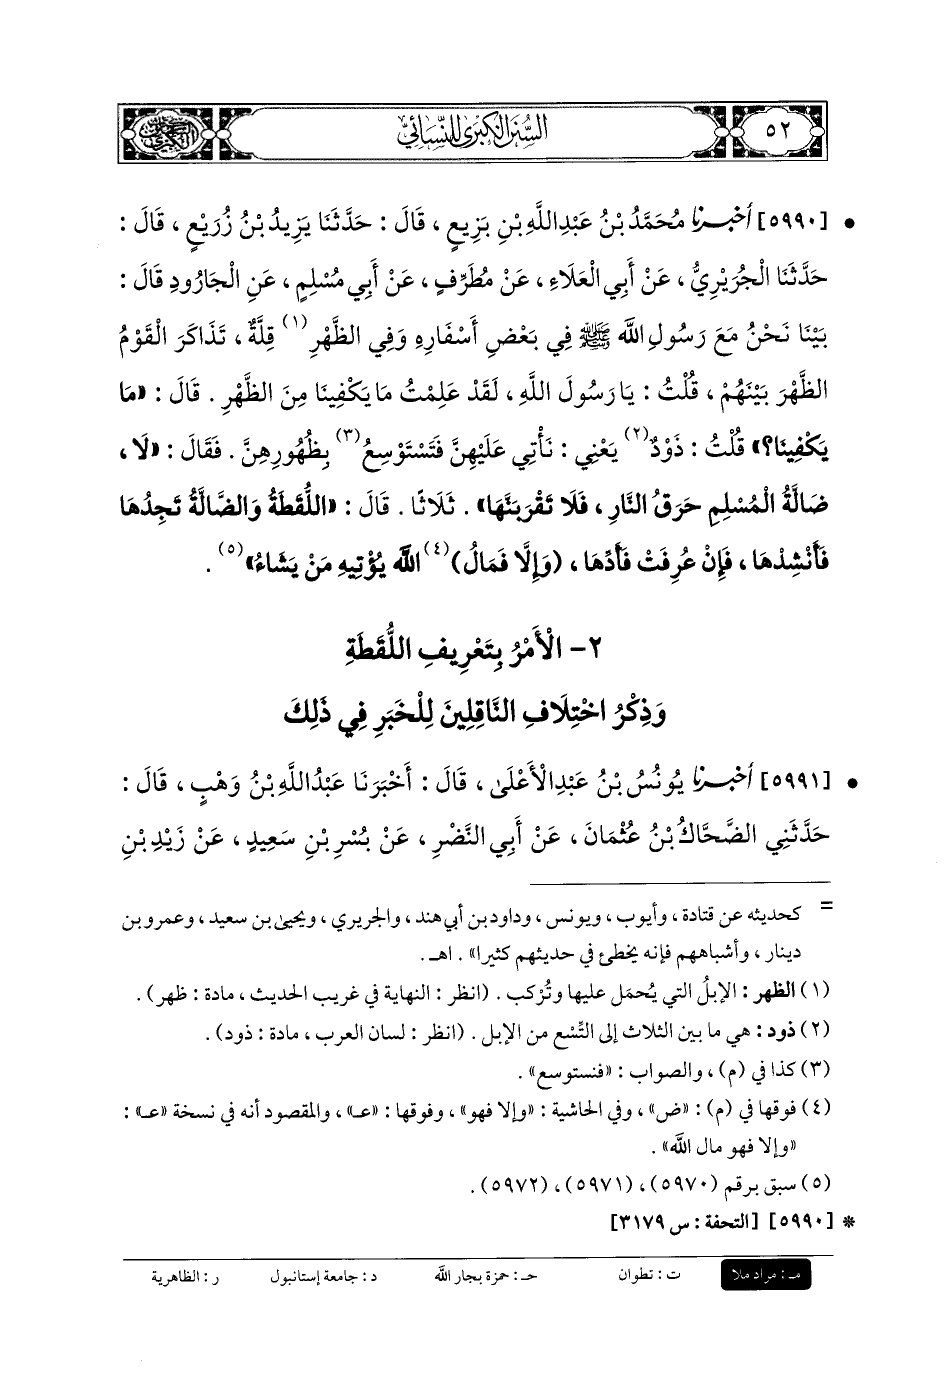 ٥٢
السنن الكبرى للنسائي
• [٥٩٩٠] أخبرنا مُحَمَّدُ بْنُ عَبْدِاللَّهِ بْنِ بَزِيعٍ ، قَالَ : حَدَّثَنَا يَزِيدُ بْنُ زُرَيْعٍ ، قَالَ :
حَدَّثَنَا الْجُرَيْرِيُّ ، عَنْ أَبِي الْعَلَاءِ ، عَنْ مُطَرِّفٍ ، عَنْ أَبِي مُسْلِمٍ ، عَنِ الْجَارُودِ قَالَ :
بَيْنَا نَحْنُ مَعَ رَسُولِ اللَّه ﷺ فِي بَعْضِ أَسْفَارِهِ وَفِي الظَّهْرِ (١) قِلَّةٌ ، تَذَاكَرَ الْقَوْمُ
الظَّهْرَ بَيْنَهُمْ ، قُلْتُ : يَا رَسُولَ اللَّهِ ، لَقَدْ عَلِمْتُ مَا يَكْفِينَا مِنَ الظَّهْرِ . قَالَ : «مَا
يَكْفِينَا؟» قُلْتُ : ذَوْدٌ (٢) يَعْنِي : نَأْتِي عَلَيْهِنَّ فَتَسْتَوْسِعُ (٣) بِظُهُورِهِنَّ . فَقَالَ : «لَا ،
ضَالَّةُ الْمُسْلِمِ حَرَقُ النَّارِ ، فَلَا تَقْرَبَنَّهَا» . ثَلَاثًا . قَالَ : «اللُّقَطَةُ وَالضَّالَّةُ تَجِدُهَا
فَأَنْشِدْهَا ، فَإِنْ عُرِفَتْ فَأَدِّهَا ، (وَإِلَّا فَمَالُ) (٤) اللَّه يُؤْتِيهِ مَنْ يَشَاءُ» (٥) .
٢- الْأَمْرُ بِتَعْرِيفِ اللُّقَطَةِ
وَذِكْرُ اخْتِلَافِ النَّاقِلِينَ لِلْخَبَرِ فِي ذَلِكَ
• [٥٩٩١] أخبرنا يُونُسُ بْنُ عَبْدِالْأَعْلَى ، قَالَ : أَخْبَرَنَا عَبْدُاللَّهِ بْنُ وَهْبٍ ، قَالَ :
حَدَّثَنِي الضَّحَّاكُ بْنُ عُثْمَانَ ، عَنْ أَبِي النَّضْرِ ، عَنْ بُسْرِ بْنِ سَعِيدٍ ، عَنْ زَيْدِ بْنِ
= كحديثه عن قتادة ، وأيوب ، ويونس ، وداود بن أبي هند ، والجريري ، ويحيى بن سعيد ، وعمرو بن
دينار ، وأشباههم فإنه يخطئ في حديثهم كثيرا» . اهـ .
(١) الظهر : الإبلُ التي يُحمَل عليها وتُرْكب . (انظر : النهاية في غريب الحديث ، مادة : ظهر) .
(٢) ذود : هي ما بين الثلاث إلى التِّسْع من الإبل . (انظر : لسان العرب ، مادة : ذود) .
(٣) كذا في (م) ، والصواب : «فنستوسع» .
(٤) فوقها في (م) : «ض» ، وفي الحاشية : «وإلا فهو» ، وفوقها : «عـ» ، والمقصود أنه في نسخة «عـ» :
«وإلا فهو مال اللَّه» .
(٥) سبق برقم (٥٩٧٠) ، (٥٩٧١) ، (٥٩٧٢) .
* [٥٩٩٠] [التحفة : س ٣١٧٩]
مـ : مراد ملا ت : تطوان حـ : حمزة بجار اللَّه د : جامعة إستانبول ر : الظاهرية